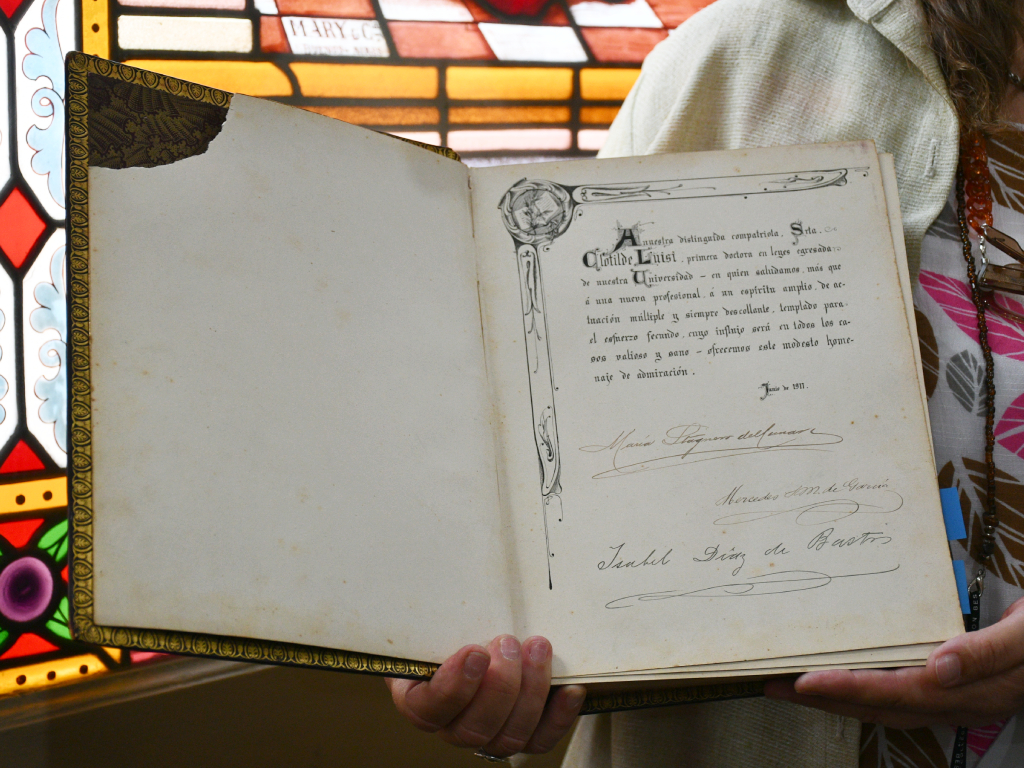 MARY & Cº
BUENOS AIRES
A nuestra distinguida compatriota, Srta.
Clotilde Luisi, primera doctora en leyes egresada
de nuestra Universidad – en quien saludamos, más que
á una nueva profesional, á un espíritu amplio, de ac-
tuación múltiple y siempre descollante, templado para
el esfuerzo fecundo, cuyo influjo será en todos los ca-
sos valioso y sano – ofrecemos este modesto home-
naje de admiración.
Junio de 1911.
María
Mercedes de García
Isabel Díaz de Bastos